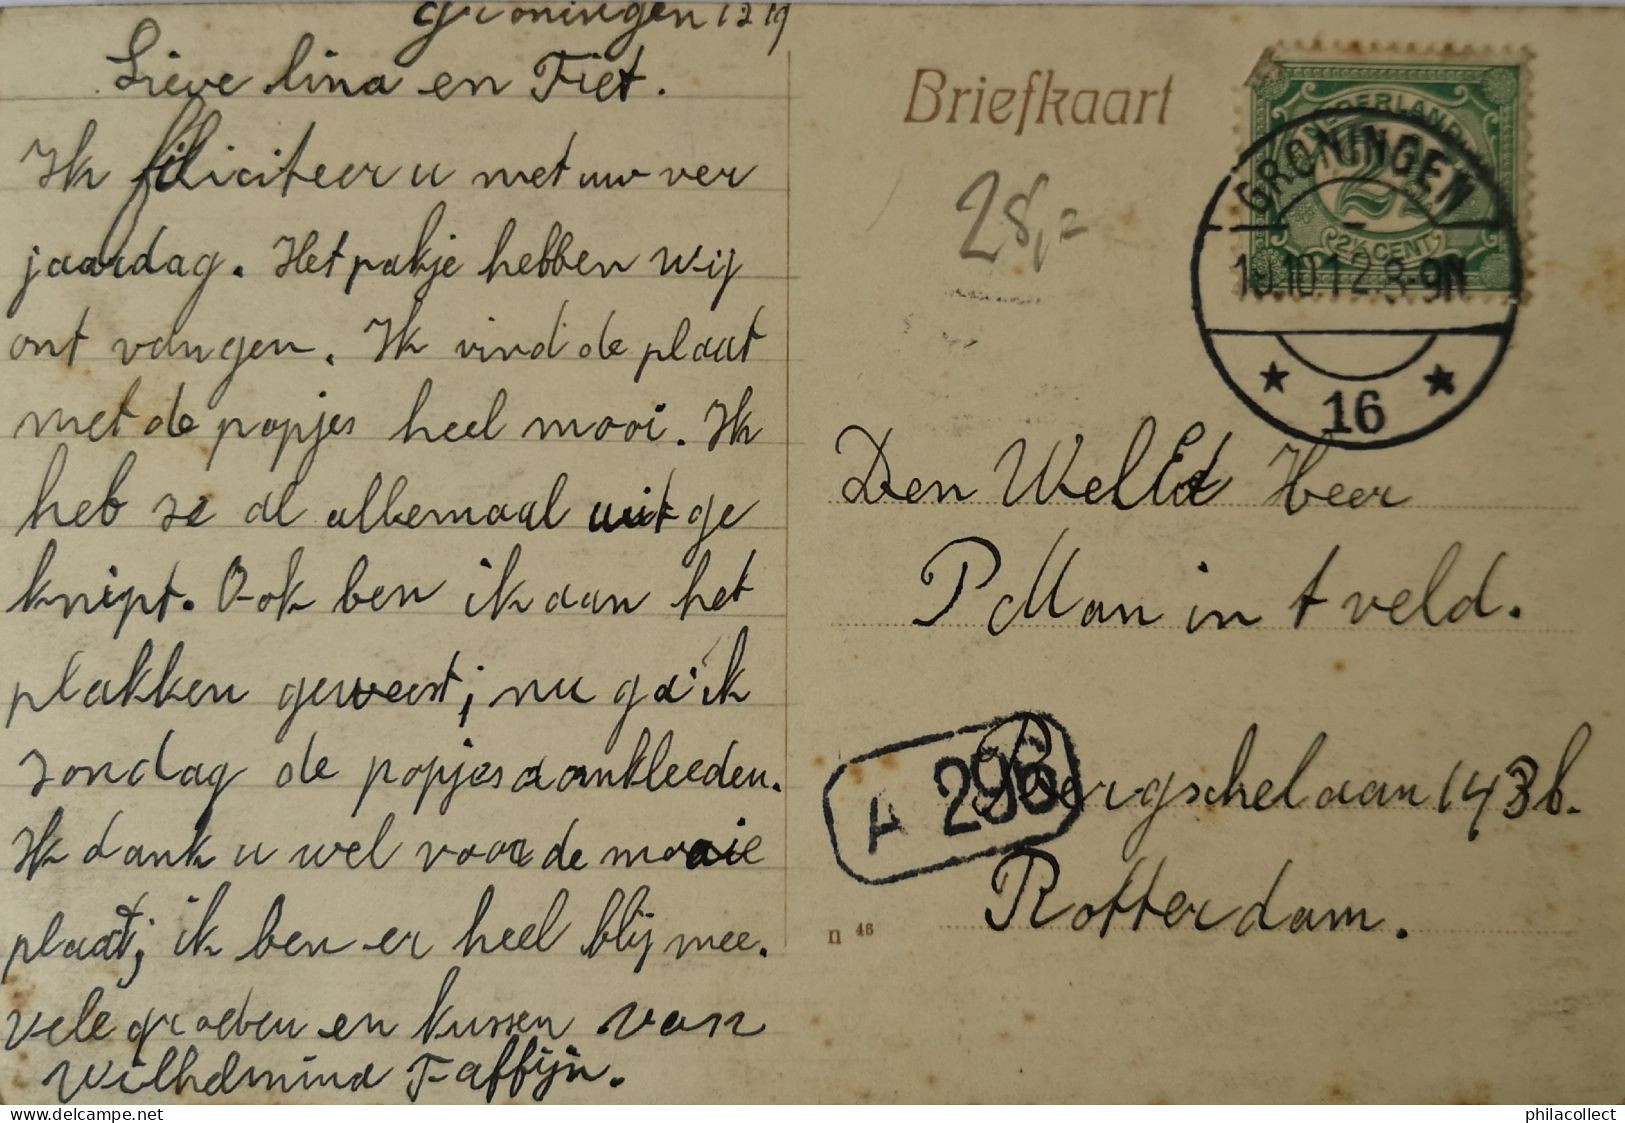 Groningen
Lieve lina en Fiet.
Ik filiciteer u met uw ver
jaardag. Het pakje hebben wij
ont vangen. Ik vind de plaat
met de popjes heel mooi. Ik
heb ze al allemaal uit ge
knipt. Ook ben ik aan het
plakken geweest; nu ga ik
zondag de popjes aankleeden.
Ik dank u wel voor de mooie
plaat; ik ben er heel blij mee.
vele groeten en kussen van
Wilhelmina Faffijn.
Briefkaart
28,=
NEDERLAND
2½ CENT
GRONINGEN
10.10.12.8-9N
16
Den WelEd Heer
P Man in t veld.
A 296
Bergschelaan 143b.
Rotterdam.
n 46
philacollect